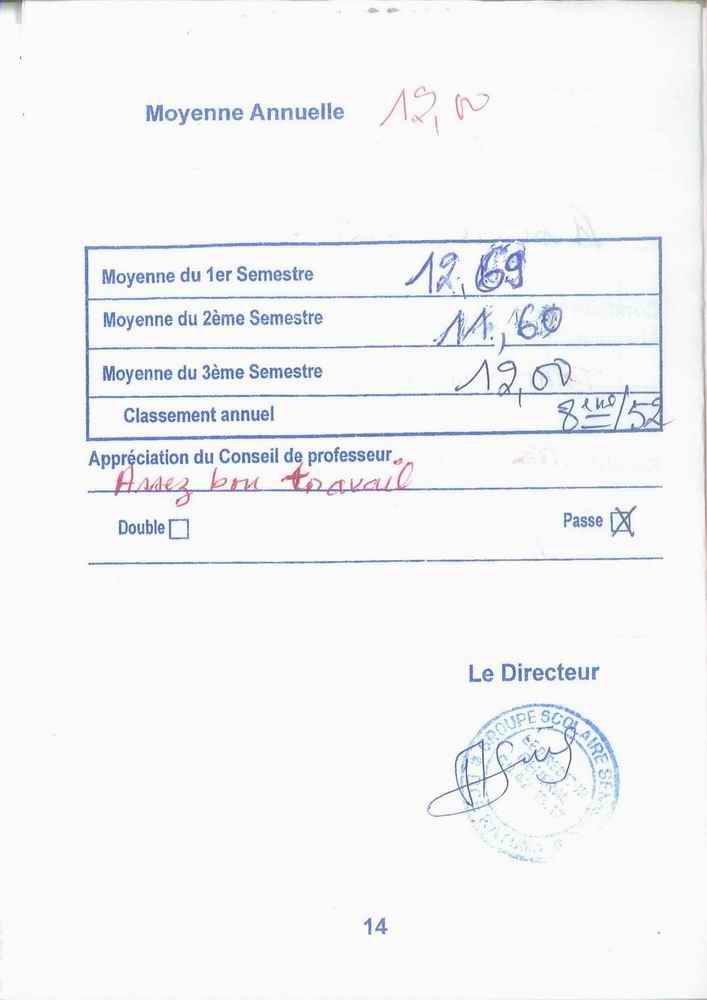 Moyenne Annuelle 12,00
Moyenne du 1er Semestre 12,69
Moyenne du 2ème Semestre 11,60
Moyenne du 3ème Semestre 12,00
Classement annuel 8ème/52
Appréciation du Conseil de professeur.
Assez bon travail
Double
Passe X
Le Directeur
GROUPE SCOLAIRE
14